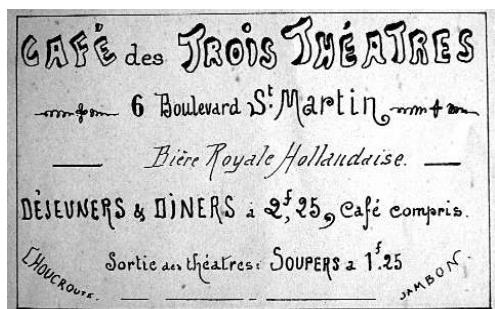 CAFÉ des TROIS THÉATRES
6 Boulevard St. Martin
Bière Royale Hollandaise.
DÈJEUNERS & DINERS à 2f,25, Café compris.
Sortie des théatres: SOUPERS a 1f.25
CHOUCROUTE.
JAMBON.